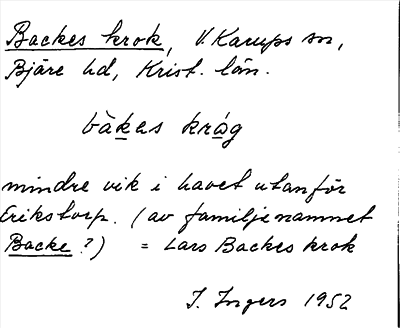 Backes krok, V. Karups sn,
Bjäre hd, Krist. län.
bàkas kråg
mindre vik i havet utanför
Erikstorp. (av familjenamnet
Backe?) = Lars Backes krok
I. Ingers 1952